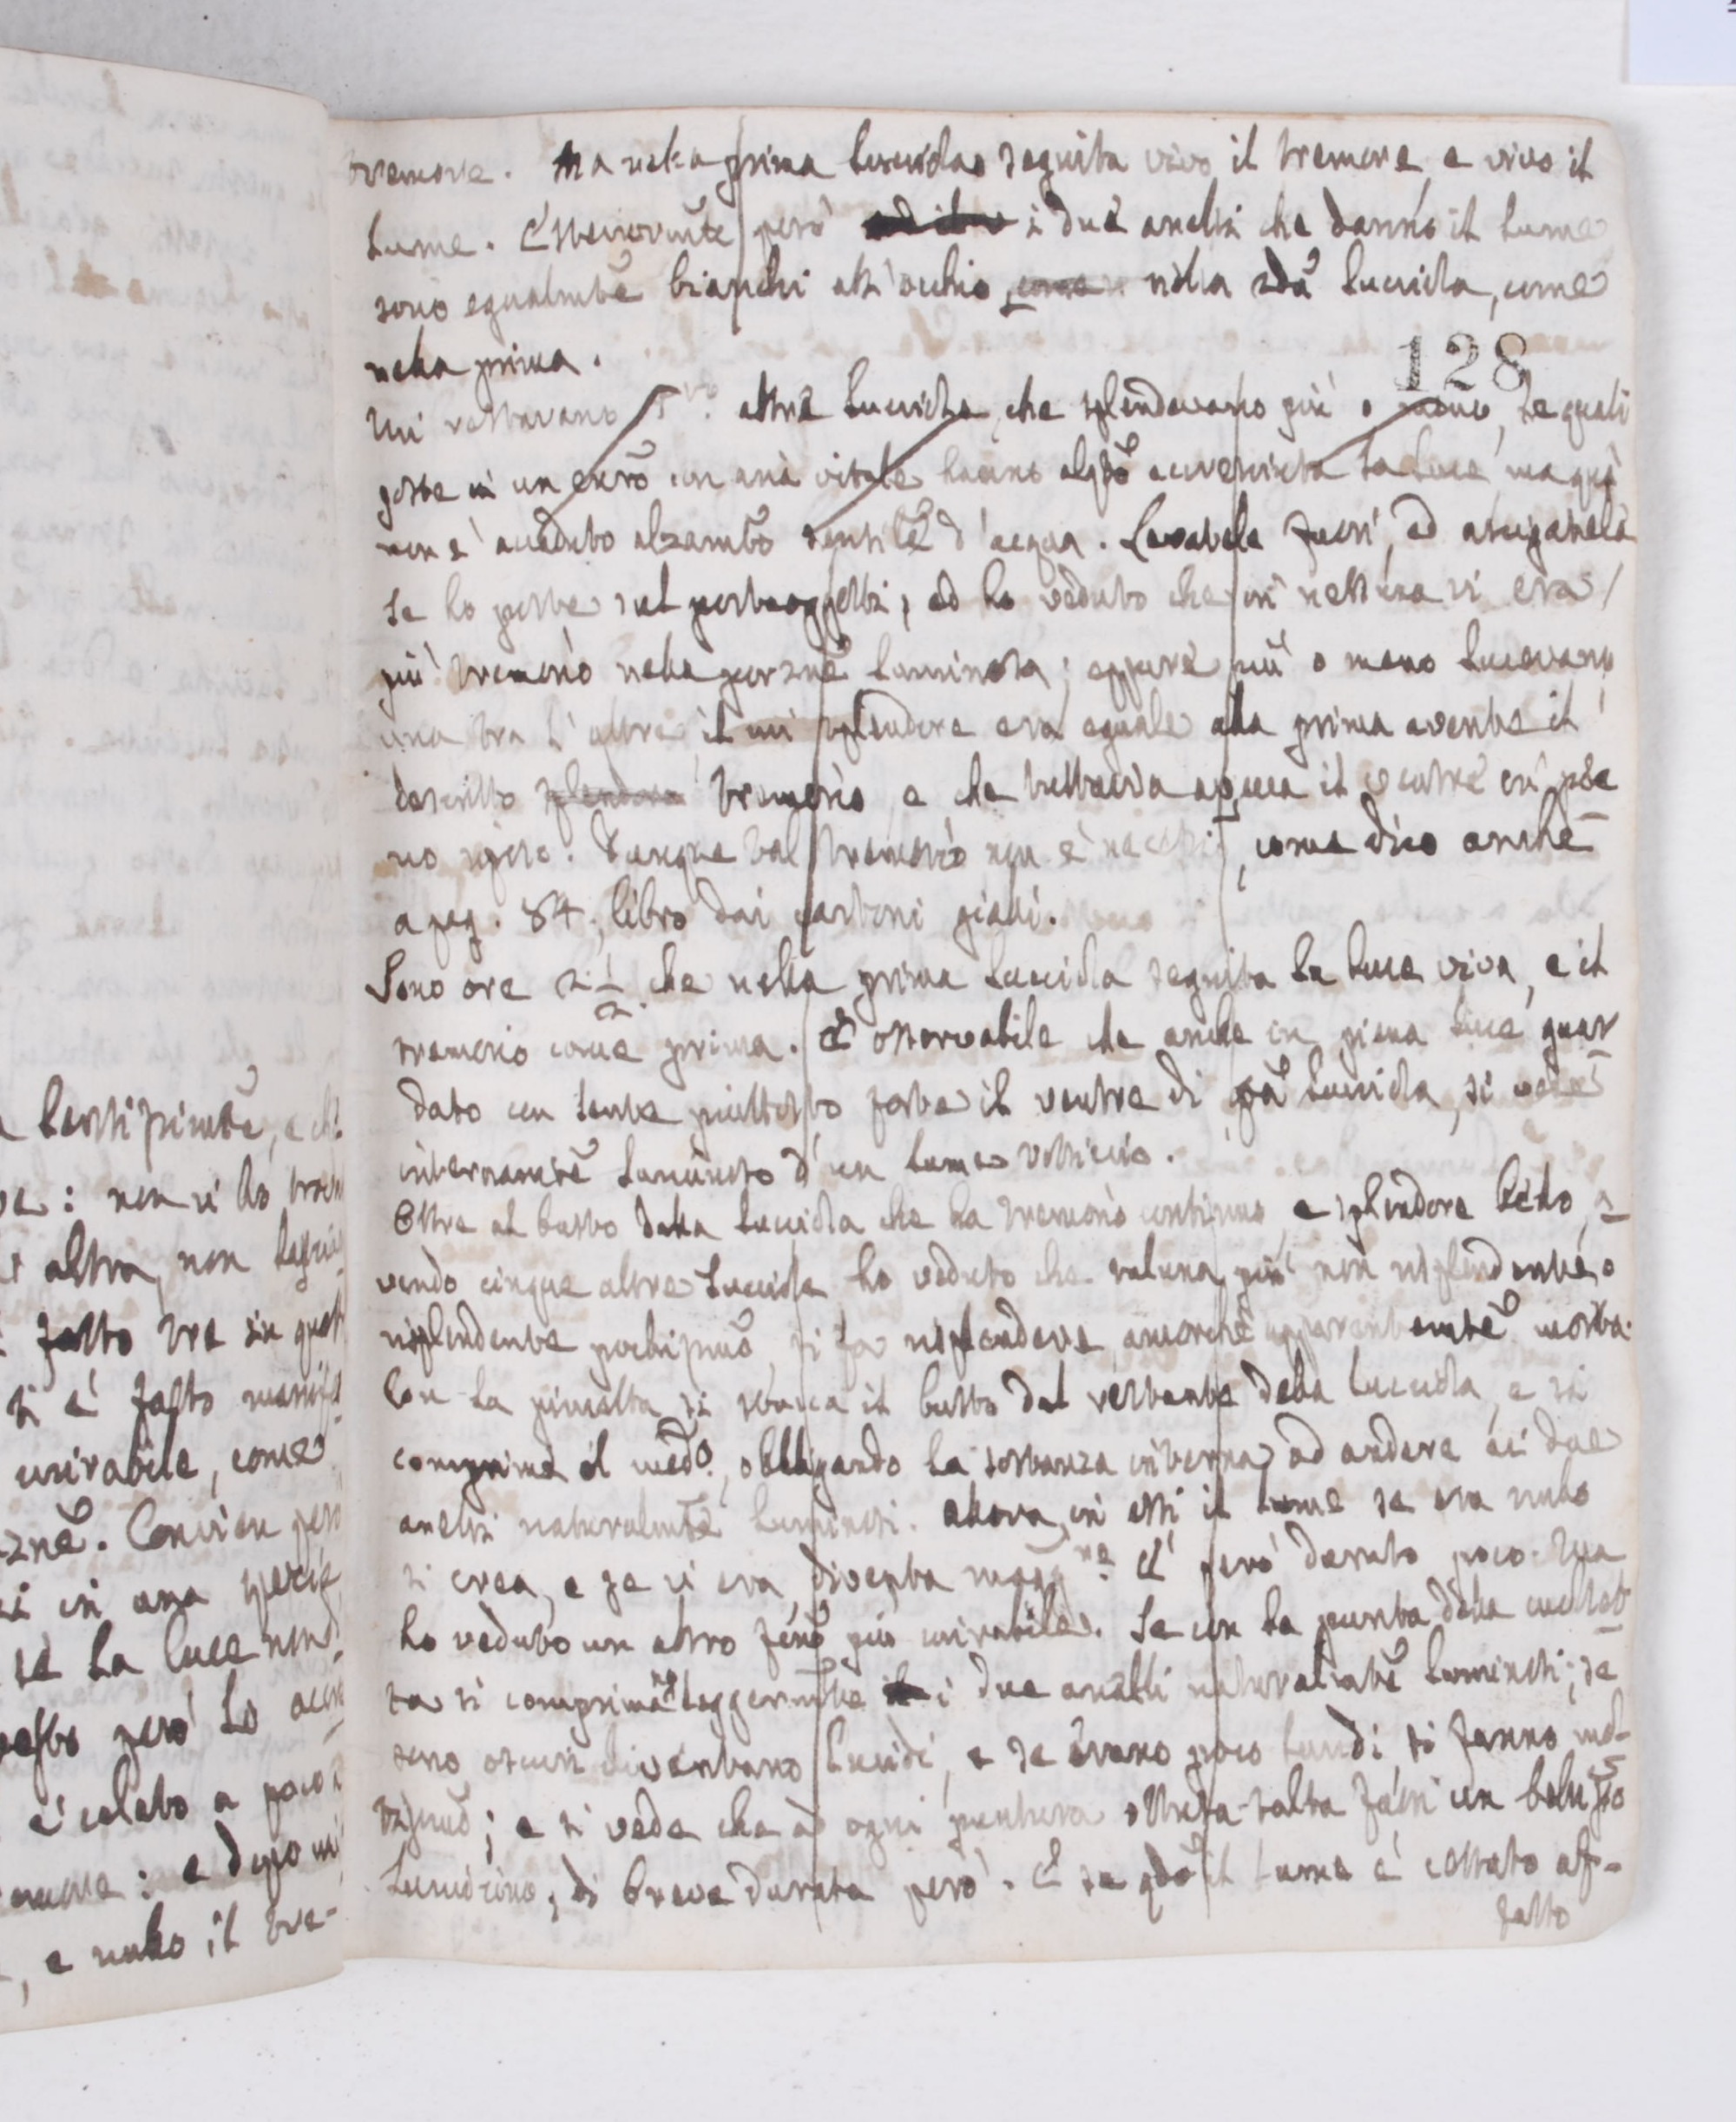 tremore. Ma nella prima lucciola seguita vivo il tremore, e vivo il
lume. Esteriormte però i due anelli che danno il lume
sono egualmte bianchi all'occhio, come nella 2da lucciola, come
nella prima.
128
Mi restavano 5 altre lucciole, che splendevano più o meno, le quali
poste in un con aria vitale hanno alqto accresciuta la luce, ma qui
non è accaduto alzamto sensile d'acqua. Levatele fuori, ed asciugatele
le ho poste sul portaoggetti, ed ho veduto che in nessuna vi era
più tremorìo nella porzne luminosa; eppure più o meno lucevano
una tra l'altre, il cui splendore era eguale alla prima avente il
descritto splendore tremorìo, e che tuttavia aveva il ventre in pie
no riposo. Dunque tal tremorìo non è, come dico anche
a pag. 84, libro dai cartoni gialli.
Sono ore 2 1/2 che nella prima lucciola seguita la luce viva, e il
tremorio come prima. È osservabile che anche in piena luce guar
dato con lente piuttosto forte il ventre di qta lucciola, si vede
internamte luminoso d'un lume volticcio.
Oltre al busto della lucciola che ha tremorìo continuo, e splendore bello, a
vendo cinque altre lucciole ho veduto che taluna più non risplendente, o
risplendente pochissmo, si fa risplendere, ancorchè apparentemte morta.
Con la pinzetta si stacca il busto dal restante della lucciola, e si
comprime il medo, obbligando la sostanza interna ad andare ai due
anelli naturalmte luminosi. Allora in essi il lume se era nullo
si crea, e se vi era, diventa maggre. È però durato poco. Ma
ho veduto un altro feno più mirabile. Se con la punta della mollet
ta si comprimano leggermte i due anelli naturalmte luminosi, se
sono oscuri diventano lucidi, e se erano poco lucidi, si fanno mol-
tissmo; e si vede che ad ogni puntura salta fuori un
lucidissimo, di breve durata però. E se qdo il lume è cessato af-
fatto
a
: non vi ho trem
altra, non
fatto tre in quest
si è fatto manifes
mirabile, come
zne. Convien però
in una specie
se la luce non
però lo
è calato a poco
: e dopo
, e nullo il tre-